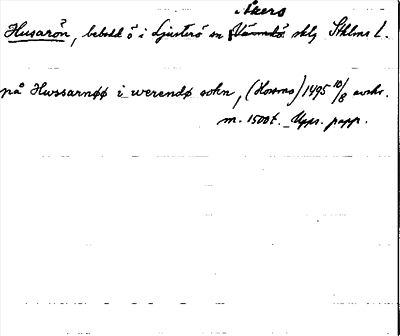 Åkers
Husarön, bebodd ö i Ljusterö sn Värmdö sklg Sthlms l.
på Hwssarnøø i werendø sokn, (Horns) 1495 10/8 avskr.
m. 1500t. Upps. papp.